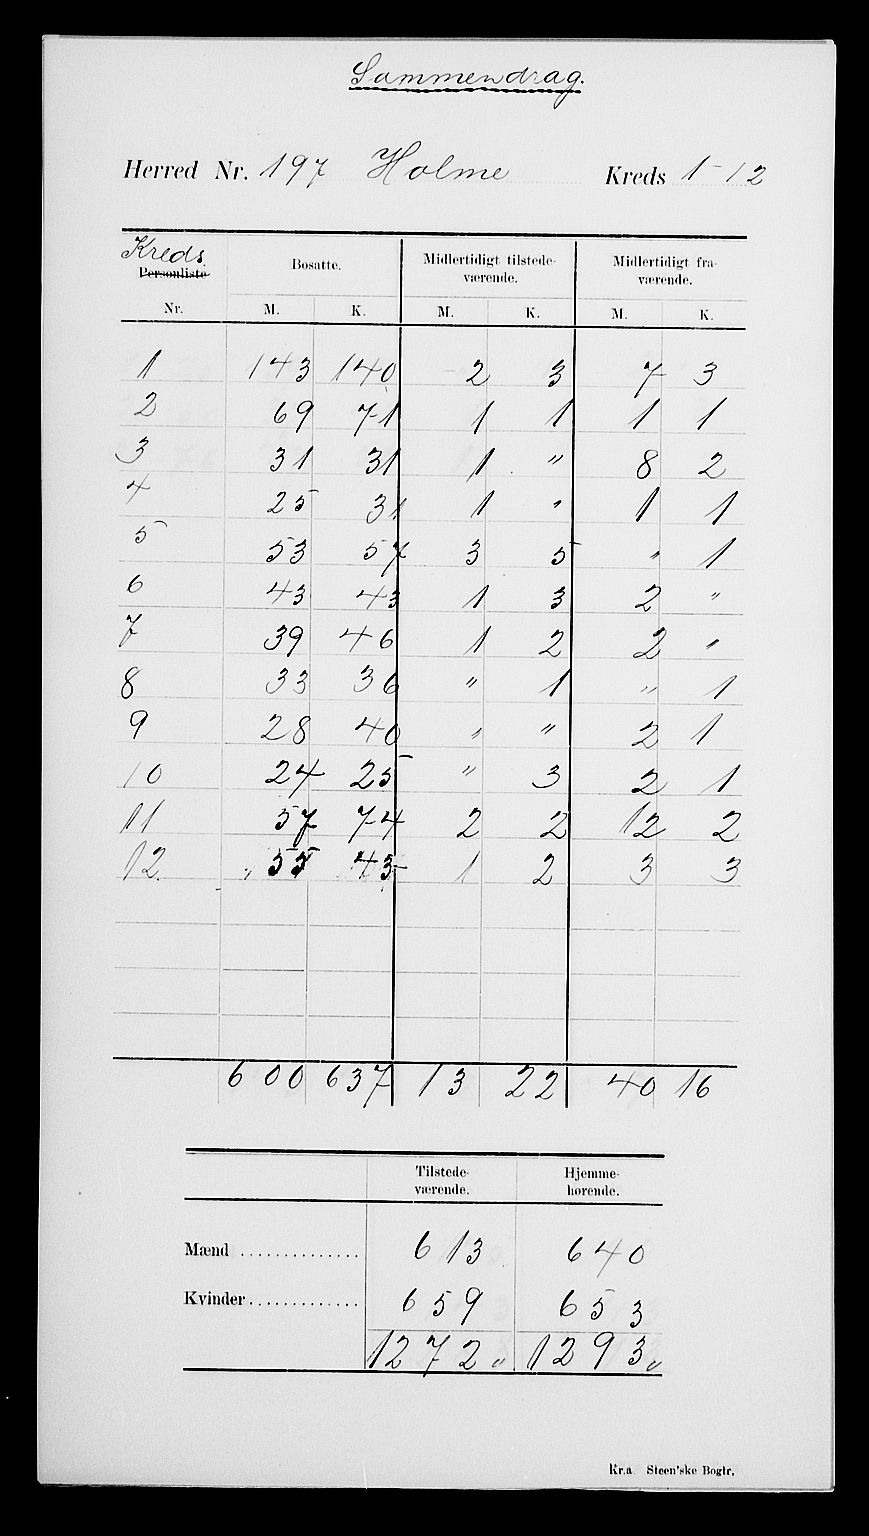 Sammendrag.
Herred Nr. 197 Holme Kreds 1-12
Kreds.
Personliste Bosatte. Midlertidigt tilstede- Midlertidigt fra-
værende. værende.
Nr. M. K. M. K. M. K.
1 143 140 2 3 7 3
2 69 71 1 1 1 1
3 31 31 1 " 8 2
4 25 31 1 " 1 1
5 53 57 3 5 " 1
6 43 43 1 3 2 "
7 39 46 1 2 2 "
8 33 36 " 1 " 1
9 28 40 " " 2 1
10 24 25 " 3 2 1
11 57 74 2 2 12 2
12. 55 43 1 2 3 3
600 637 13 22 40 16
Tilstede- Hjemme-
værende. hørende.
Mænd .............. 613 640
Kvinder ............. 659 653
1272 " 1293 "
Kr.a Steen'ske Bogtr.